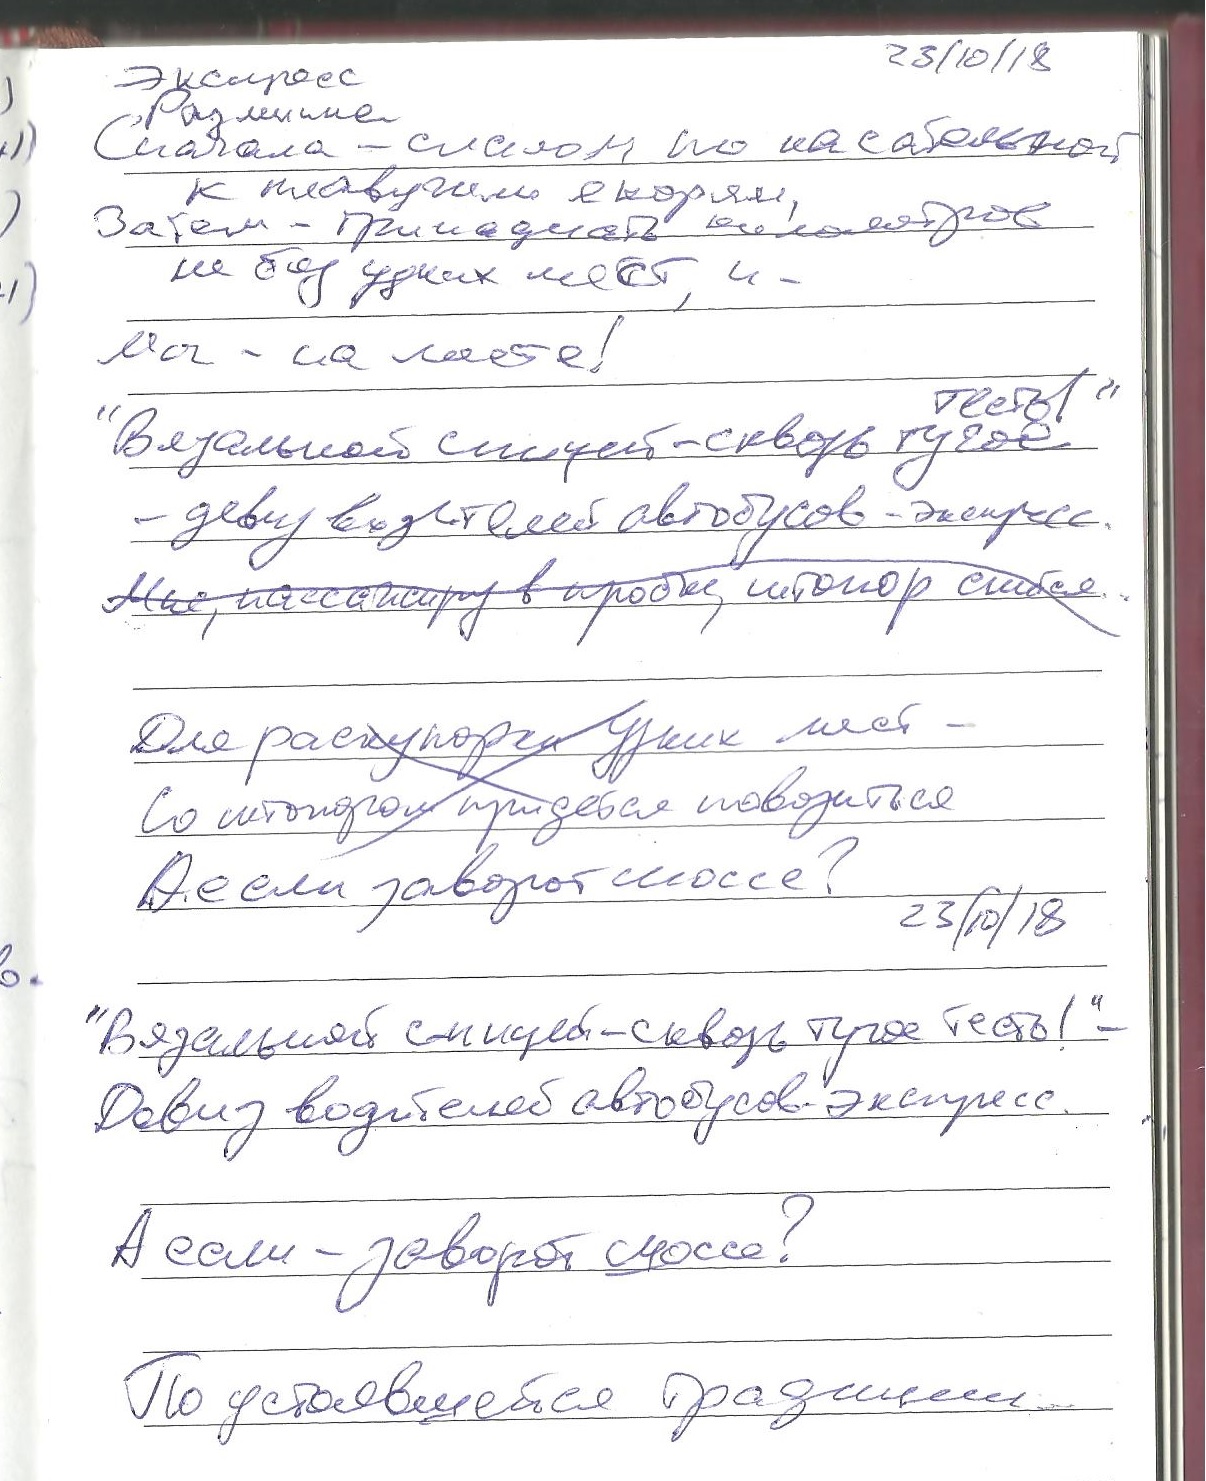 23/10/18
Экспресс
Разминка
Сначала – слалом по касательной
к плавучим якорям,
Затем – Тринадцать километров
не без узких мест, и –
Мы – на месте!
тесто!"
"Вязальной спицей – сквозь тугое
– девиз водителей автобусов-экспресс.
Мне, пассажиру в пробке, штопор снится...
Для раскупорки Узких мест –
Со штопором придётся повозиться
А если заворот шоссе?
23/10/18
"Вязальной спицей – сквозь тугое тесто!" –
Девиз водителей автобусов-экспресс.
А если – заворот шоссе?
По устоявшейся традиции...